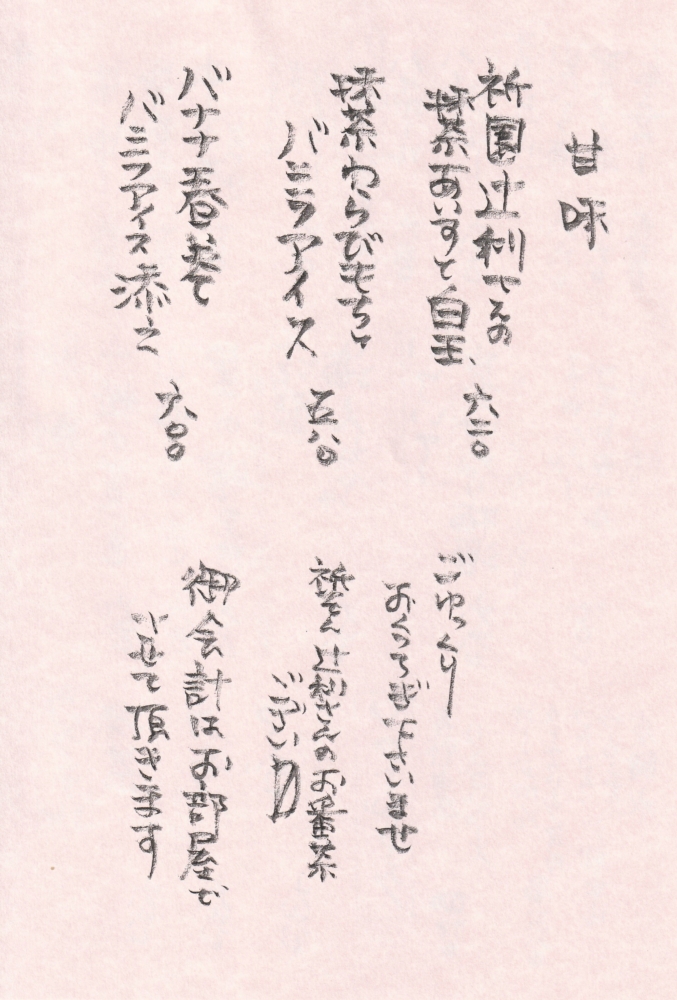 甘味
祇園辻利さんの
抹茶あいすと白玉、
六二〇
抹茶わらびもちと
バニラアイス
五八〇
バナナ春巻と
バニラアイス添え
六〇〇
ごゆっくり
おくつろぎ下さいませ
祇をん辻利さんのお番茶
ございます
御会計はお部屋で
させて頂きます